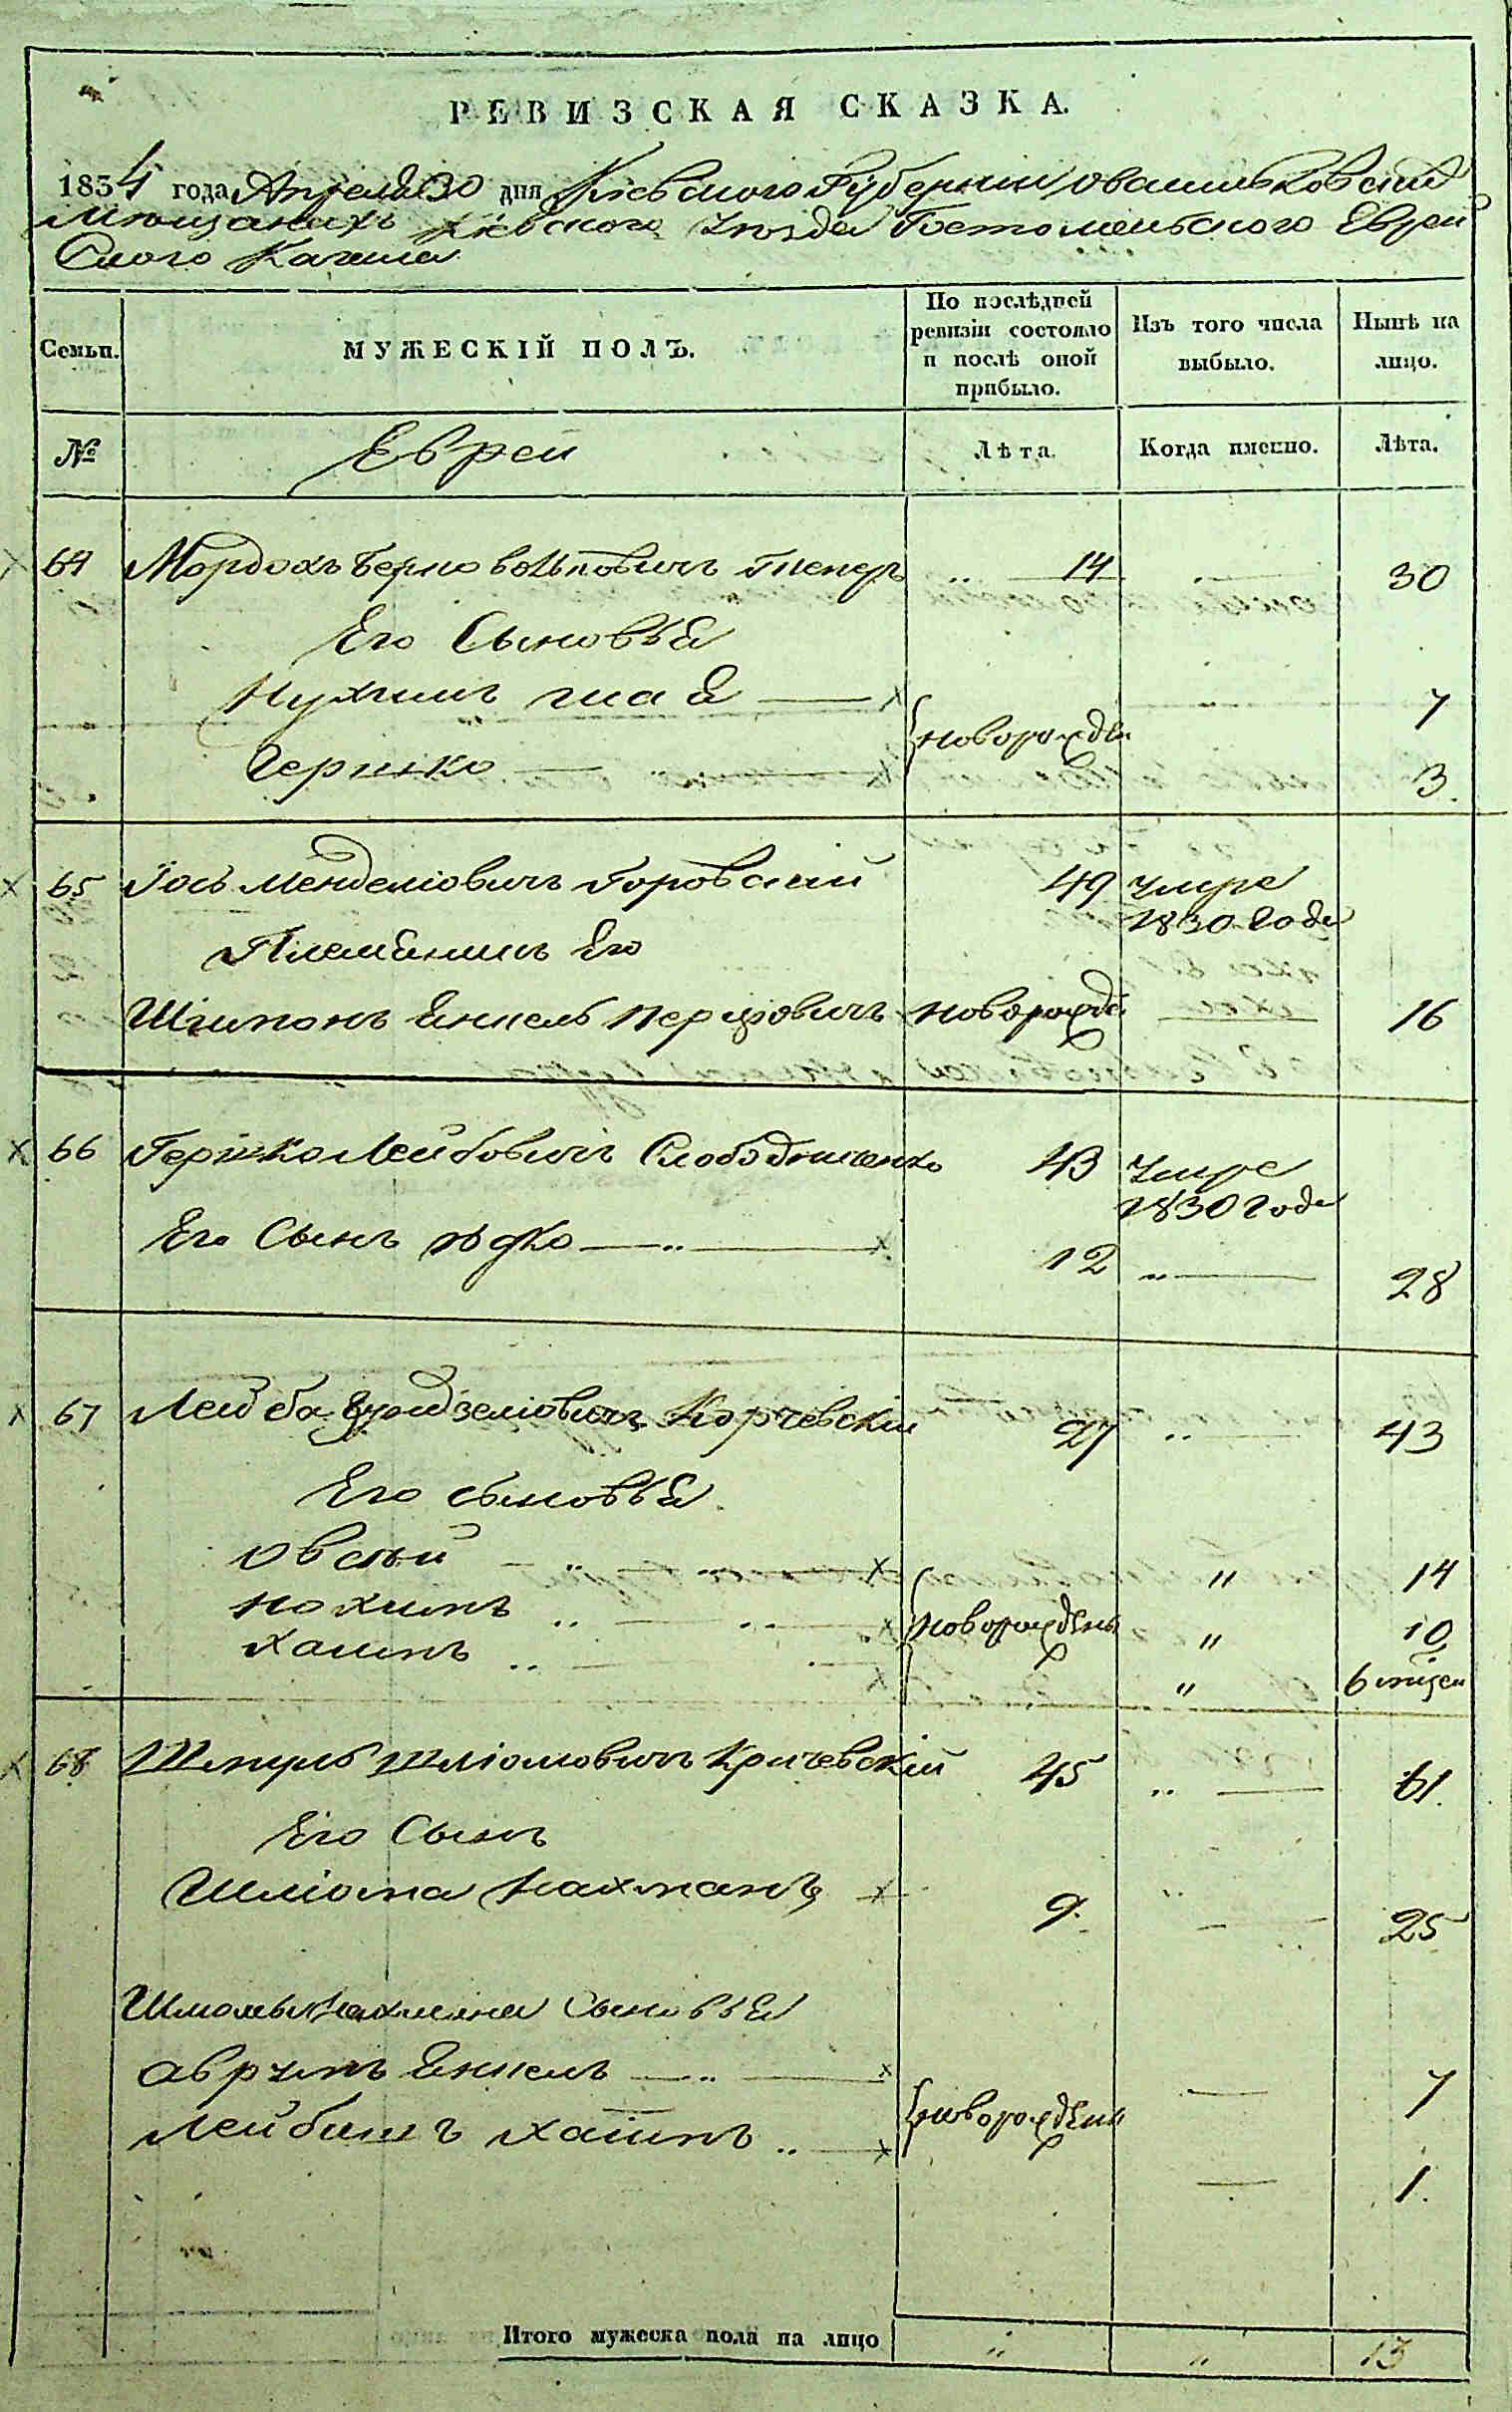 РЕВИЗСКАЯ СКАЗКА.
1834 года Апреля 30 дня Кіевской Губерніи о Васильковскихъ
Мѣщанахъ Кіевского Уѣзда Гостомельского Еврей
ского Кагала
Семьи. МУЖЕСКІЙ ПОЛЪ. По послѣдней ревизіи состояло и послѣ оной прибыло. Изъ того числа выбыло. Нынѣ на лицо.
№ Евреи Лѣта. Когда именно. Лѣта.
64 Мордохъ Берко 14 30
Его Сыновья
7
Гершко новорожден 3
65 Іось Менделіовичъ Горовский 49 умре
1830 года
Племянникъ Его
Енкель новорожде 16
66 Гершко Лейбовичъ 43 умре
1830 года
Его Сынъ 12 28
67 Лейба Корчевскій 27 43
Его сыновья
Овсѣй " 14
Нохимъ новорожден " 10
Хаимъ " 6 мѣсец
68 Шмуль Шліомовичъ Кричевскій 45 61
Его Сынъ
Шліома Нахманъ 9 25
Шліомы Нахмана Сыновья
Аврумъ Енкель 7
Лейбишъ Хаимъ новорожден 1.
Итого мужеска пола на лицо " " 13